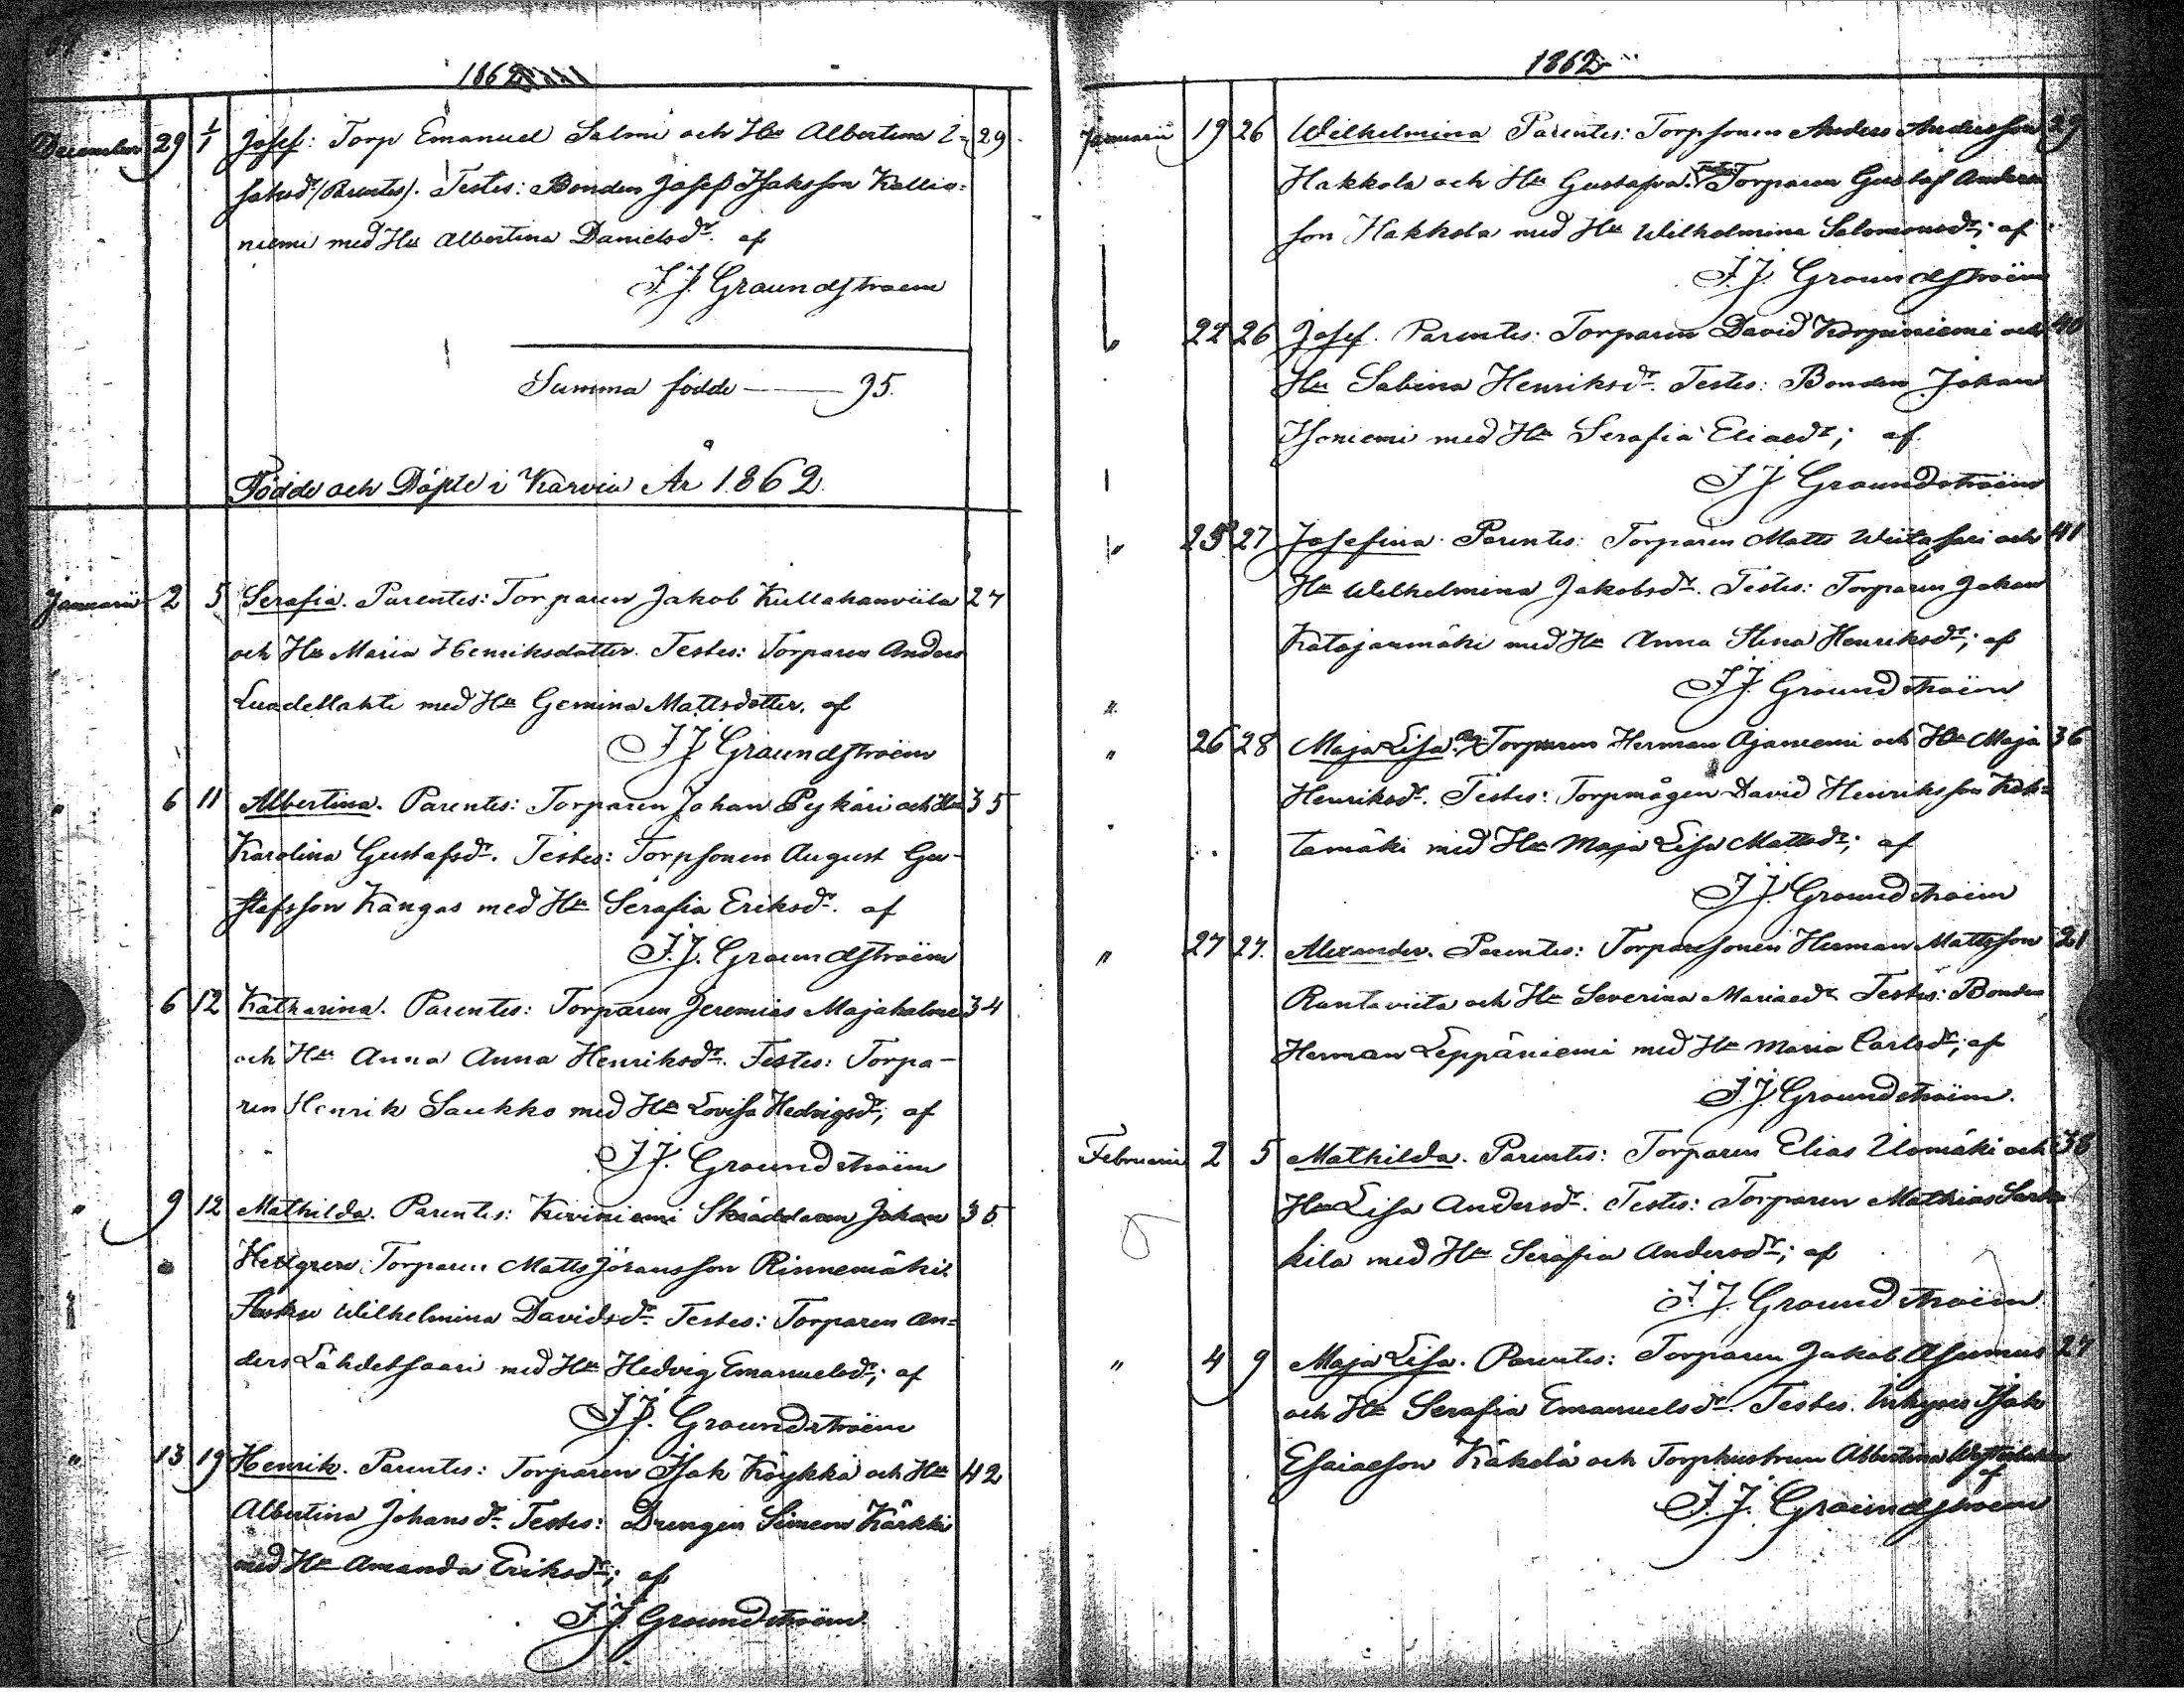 1862
December 29 1/1 Josef: Torp Emanuel Salmi och Hu Albertina I= 29
saksdr (Parentes). Testes: Bonden Josef Isaksson Kallio=
niemi med Hu Albertina Danielsdr. af
J.J. Graundstroem
Summa födde — 95.
Födde och Döpte i Karvia År 1862.
Januarii 2 5 Serafia. Parentes: Torparen Jakob Kullahanviita 27
och Hu Maria Henriksdotter. Testes: Torparen Anders
med Hu Gemina Mattsdotter, af
J J Graundstroëm
" 6 11 Albertina. Parentes: Torparen Johan Pykäri och Hu 35
Karolina Gustafsdr. Testes: Torpsonen August Gu-
stafsson Kangas med Hu Serafia Eriksdr. af
J.J. Graundstroëm
6 12 Katharina. Parentes: Torparen Jeremias Majahalme 34
och Hu Anna Anna Henriksdr. Testes: Torpa-
ren Henrik Saukko med Hu Lovisa Hedvigsdr; af
J J. Graundstroëm
" 9 12 Mathilda. Parentes: Kiviniemi Skräddaren Johan 35
Torparen Matts Göransson Rinnemäki.
Hustru Wilhelmina Davidsdr Testes: Torparen An=
ders Lähdetsaari med Hu Hedvig Emanuelsdr; af
J J. Graundstroëm
" 13 19 Henrik. Parentes: Torparen Isak Köykkä och Hu 42
Albertina Johansdr Testes: Drengen Simeon Kärkki
med Hu Amanda Eriksdr; af
J J Graundstroëm
1862
Januarii 19 26 Wilhelmina Parentes: Torpsonen Anders Andersson 29
Hakkola och Hu Gustafva. Testes Torparen Gustaf Anders
son Hakkola med Hu Wilhelmina Salomonsdr; af
J.J. Graundstroëm
" 22 26 Josef. Parentes: Torparen David Korpiniemi och 40
Hu Sabina Henriksdr. Testes: Bonden Johan
Isoniemi med Hu Serafia Eliaedr; af
J J Graundstroëm
" 25 27 Josefina. Parentes: Torparen Matts Wiitasari och 41
Hu Wilhelmina Jakobsdr. Testes: Torparen Johan
Katajanmäki med Hu Anna Stina Henriksdr; af
J J. Graundstroëm
"
" 26 28 Maja Lisa. Torparen Herman Ajaniemi och Hu Maja 36
Henriksdr. Testes: Torpmågen David Henriksson Kok=
tamäki med Hu Maja Lisa Mattsdr; af
J J. Graundstroëm
" 27 27. Alexander. Parentes: Torparesonen Herman Mattsson 21
Rantaviita och Hu Severina Mariaedr Testes: Bonden
Herman Leppäniemi med Hu Maria Carlsdr; af
J.J. Graundstroëm.
Februarii 2 5 Mathilda. Parentes: Torparen Elias Ilomäki och 36
Hu Lisa Andersdr. Testes: Torparen Mathias Sark
kila med Hu Serafia Andersdr; af
J J. Graundstroëm.
" 4 9 Maja Lisa. Parentes: Torparen Jakob Asumus 27
och Hu Serafia Emanuelsdr. Testes. Isak
Esaiaeson Käkelä och Torphustrun Albertina
af
J. J. Graundstroem